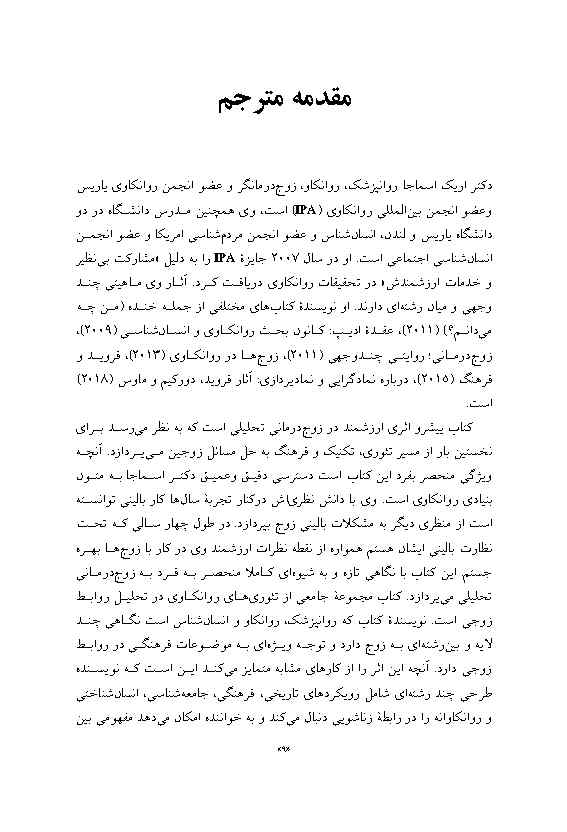 مقدمه مترجم
دکتر اریک اسماجا روانپزشک، روانکاو، زوج‌درمانگر و عضو انجمن روانکاوی پاریس
وعضو انجمن بین‌المللی روانکاوی (IPA) است، وی همچنین مدرس دانشگاه در دو
دانشگاه پاریس و لندن، انسان‌شناس و عضو انجمن مردم‌شناسی امریکا و عضو انجمن
انسان‌شناسی اجتماعی است. او در سال ۲۰۰۷ جایزۀ IPA را به دلیل «مشارکت بی‌نظیر
و خدمات ارزشمندش» در تحقیقات روانکاوی دریافت کرد. آثار وی ماهیتی چند
وجهی و میان رشته‌ای دارند. او نویسندۀ کتاب‌های مختلفی از جمله خنده (من چه
می‌دانم؟) (۲۰۱۱)، عقدۀ ادیپ: کانون بحث روانکاوی و انسان‌شناسی (۲۰۰۹)،
زوج‌درمانی؛ روایتی چندوجهی (۲۰۱۱)، زوج‌ها در روانکاوی (۲۰۱۳)، فروید و
فرهنگ (۲۰۱۵)، درباره نمادگرایی و نمادپردازی: آثار فروید، دورکیم و ماوس (۲۰۱۸)
است.
کتاب پیشرو اثری ارزشمند در زوج‌درمانی تحلیلی است که به نظر می‌رسد برای
نخستین بار از مسیر تئوری، تکنیک و فرهنگ به حل مسائل زوجین می‌پردازد. آنچه
ویژگی منحصر بفرد این کتاب است دسترسی دقیق وعمیق دکتر اسماجا به متون
بنیادی روانکاوی است. وی با دانش نظری‌اش درکنار تجربۀ سال‌ها کار بالینی توانسته
است از منظری دیگر به مشکلات بالینی زوج بپردازد. در طول چهار سالی که تحت
نظارت بالینی ایشان هستم همواره از نقطه نظرات ارزشمند وی در کار با زوج‌ها بهره
جستم. این کتاب با نگاهی تازه و به شیوه‌ای کاملا منحصر به فرد به زوج‌درمانی
تحلیلی می‌پردازد. کتاب مجموعۀ جامعی از تئوری‌های روانکاوی در تحلیل روابط
زوجی است. نویسندۀ کتاب که روانپزشک، روانکاو و انسان شناس است نگاهی چند
لایه و بین‌رشته‌ای به زوج دارد و توجه ویژه‌ای به موضوعات فرهنگی در روابط
زوجی دارد. آنچه این اثر را از کارهای مشابه متمایز می‌کند این است که نویسنده
طرحی چند رشته‌ای شامل رویکردهای تاریخی، فرهنگی، جامعه‌شناسی، انسان‌شناختی
و روانکاوانه را در رابطۀ زناشویی دنبال می‌کند و به خواننده امکان می‌دهد مفهومی بین
«۹»